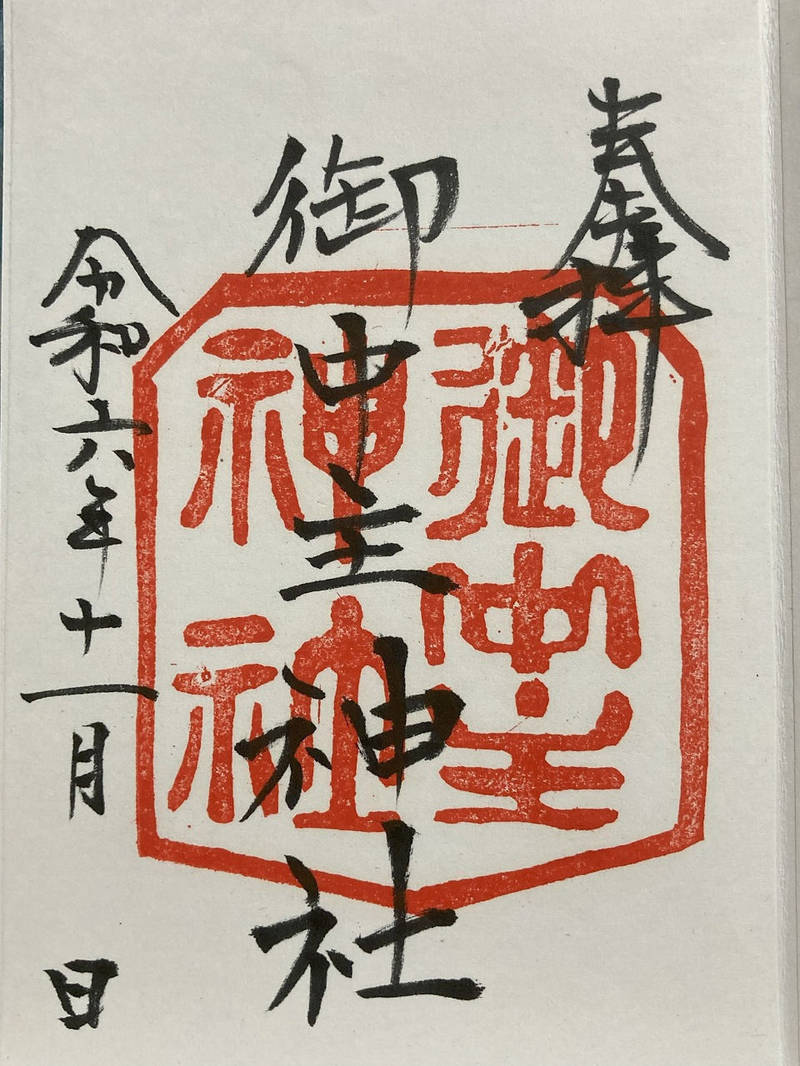 奉拝
御中主神社
令和六年十一月 日
御中主
神社